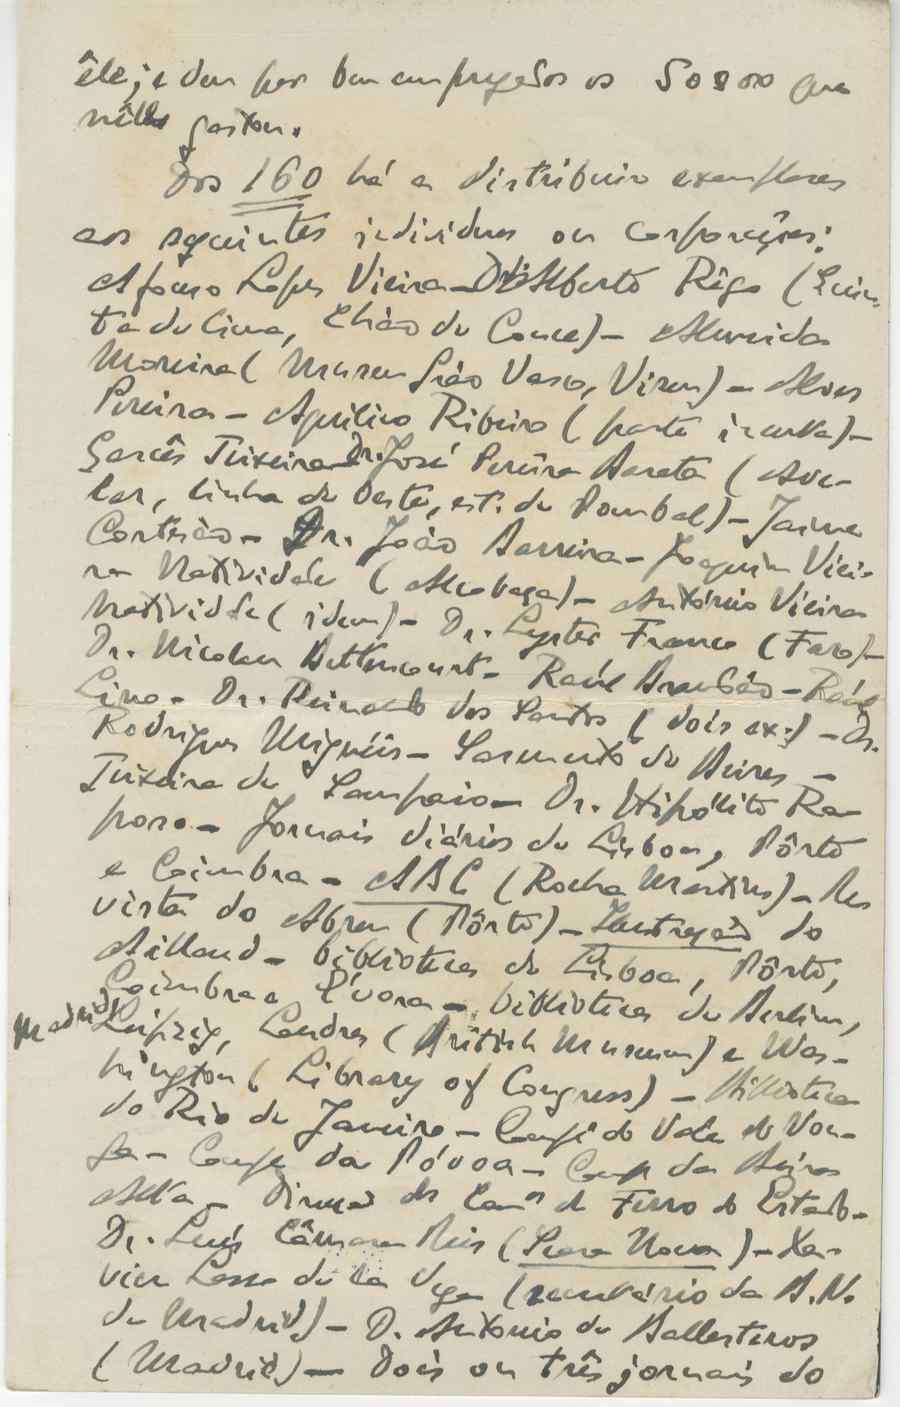 êle; e dou por bem empregados os 50$00 que
nêles gastou.
Dos 160 há a distribuir exemplares
aos seguintes indivíduos ou corporações:
Afonso Lopes Vieira — Dr. Alberto Rêgo (Quin-
ta de Cima, Chão de Couce) — Almeida
Moreira (Museu Grão Vasco, Viseu) — Alves
Pereira — Aquilino Ribeiro (parte incerta) —
Garcês Teixeira — Dr. José Pereira Barata (Ave-
lar, linha de Oeste, est. de Pombal) — Jaime
Cortesão — Dr. João Barreira — Joaquim Viei-
ra Natividade (Alcobaça) — António Vieira
Natividade (idem) — Dr. Lyster Franco (Faro) —
Dr. Nicolau Bettencourt — Raúl Brandão — Raúl
Lino — Dr. Reinaldo dos Santos (dois ex.) — Dr.
Rodrigues Miguéis — Sarmento de Beires —
Teixeira de Sampaio — Dr. Hipólito Ra-
poso — Jornais diários de Lisboa, Pôrto
e Coimbra — ABC (Rocha Martins) — Re
vista do Abreu (Pôrto) — Ilustração do
Aillaud — bibliotecas de Lisboa, Pôrto,
Coimbra e Évora — bibliotecas de Berlim,
Madrid, Leipzig, Londres (British Museum) e Was-
hington (Library of Congress) — Biblioteca
do Rio de Janeiro — Comp. do Vale do Vou-
ga — Comp. da Póvoa — Comp. da Beira
Alta — de Cam.os de Ferro do Estado —
Dr. Luís Câmara Reis (Seara Nova) — Xa-
vier Lasso de la Vega (secretário da B. N.
de Madrid) — D. António de Ballesteros
(Madrid) — Dois ou três jornais do